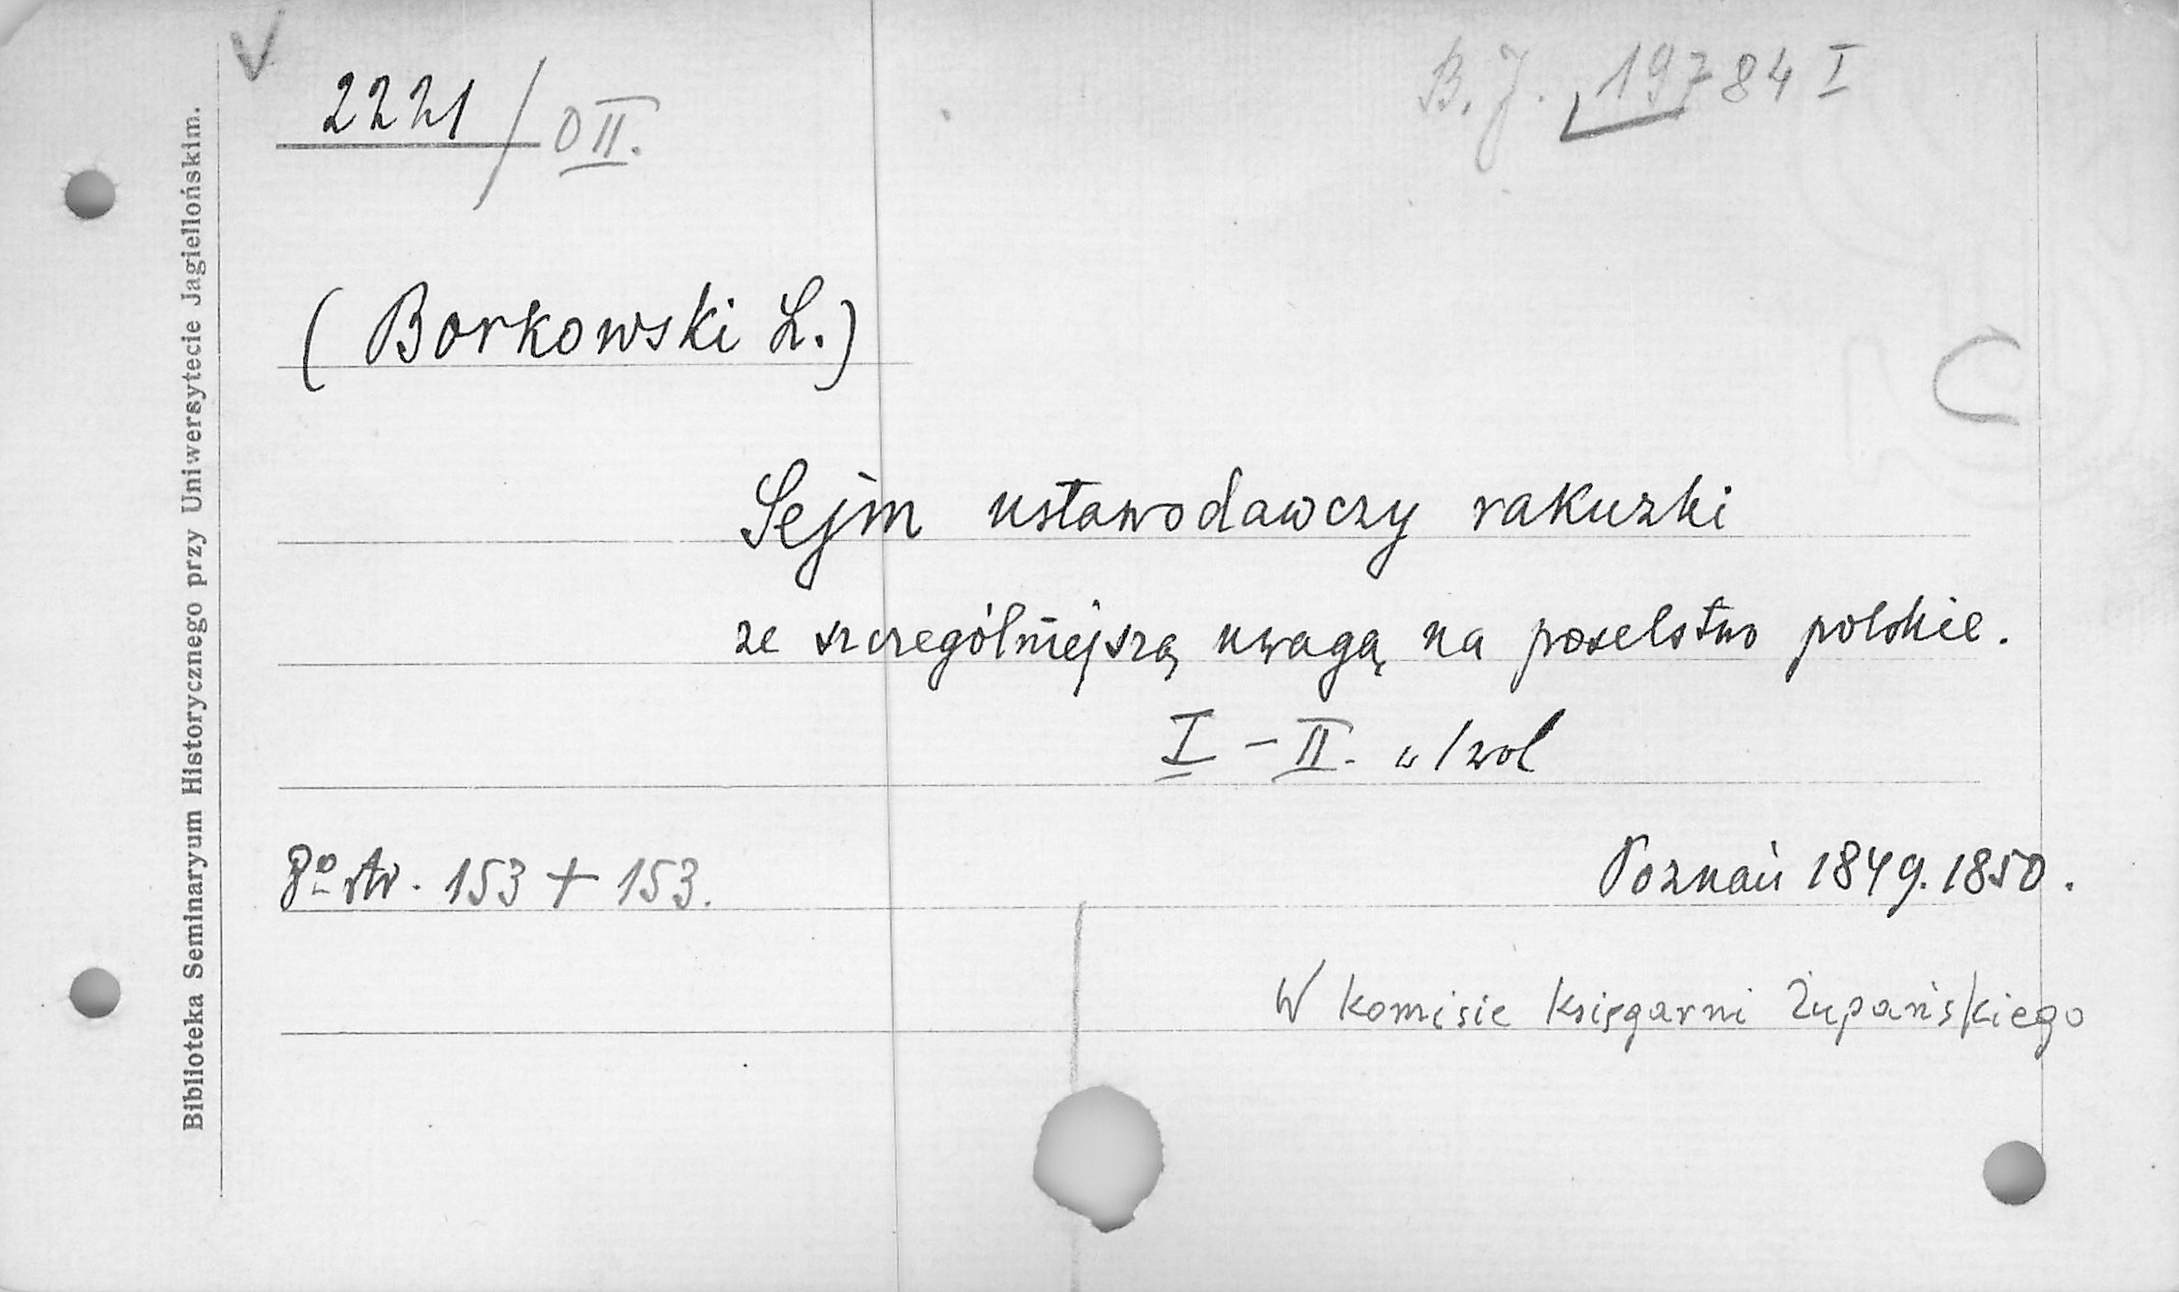 V
2221/0II.
B. J. 19784 I
(Borkowski L.)
C
Sejm ustawodawczy rakuzki
ze szczególniejszą uwagą na poselstwo polskie.
I - II. w 1 wol
8º str. 153 + 153.
Poznań 1849. 1850.
W komisie księgarni Żupańskiego
Biblioteka Seminaryum Historycznego przy Uniwersytecie Jagiellońskim.